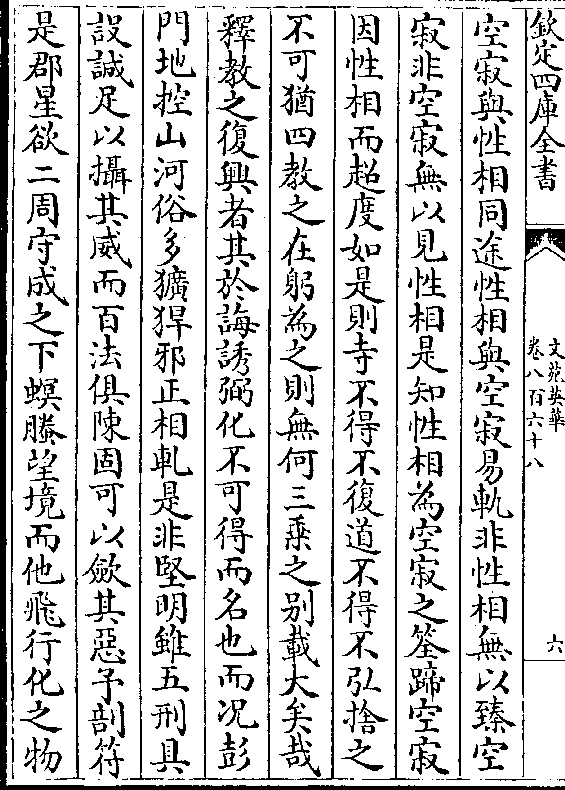 欽定四庫全書
文苑英華
卷八百六十八
六
空寂與性相同途性相與空寂易軌非性相無以臻空
寂非空寂無以見性相是知性相為空寂之筌蹄空寂
因性相而超度如是則寺不得不復道不得不弘捨之
不可猶四教之在躬為之則無何三乗之别載大矣哉
釋教之復興者其於誨誘弼化不可得而名也而况彭
門地控山河俗多獷猂邪正相軋是非堅明雖五刑具
設誠足以攝其威而百法俱陳固可以歛其惡予剖符
是郡星欲二周守成之下螟螣望境而他飛行化之物